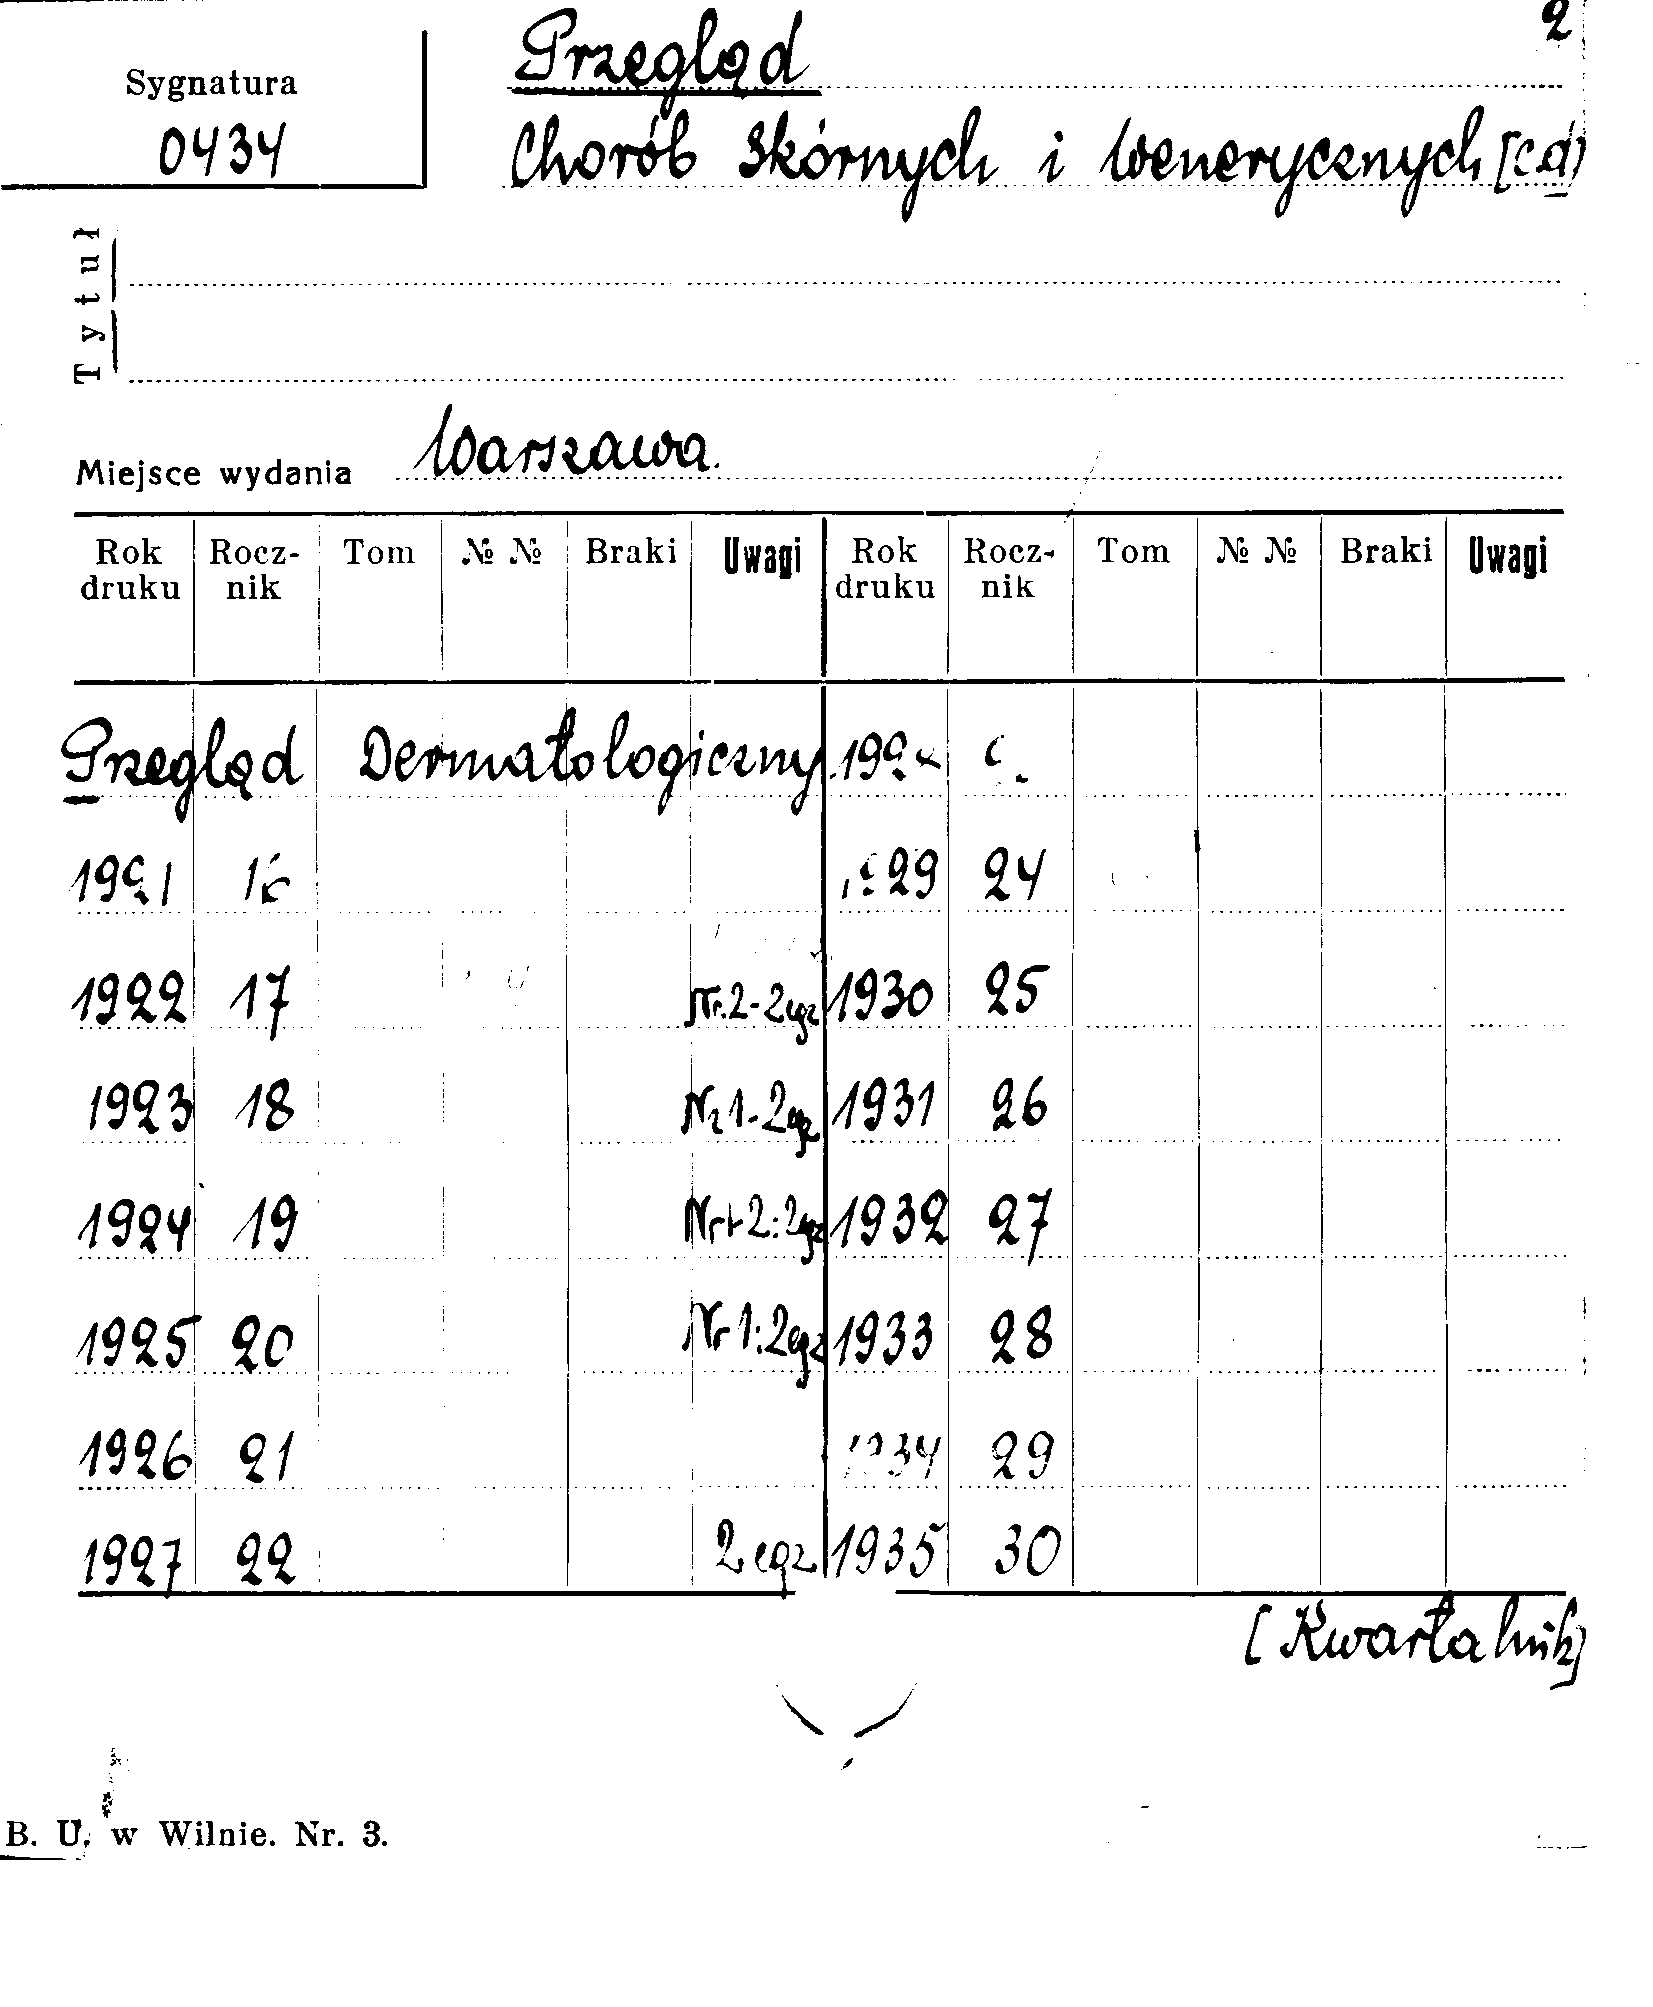 2
Sygnatura
0434
Przegląd
Chorób Skórnych i Wenerycznych [cd]
Tytuł
Miejsce wydania Warszawa.
Rok druku Rocz-nik Tom № № Braki Uwagi Rok druku Rocz-nik Tom № № Braki Uwagi
Przegląd Dermatologiczny.
1921 1929 24
1922 17 Nr.2-2egz 1930 25
1923 18 Nr 1-2egz 1931 26
1924 19 2:2egz 1932 27
1925 20 Nr 1:2egz 1933 28
1926 21 1934 29
1927 22 2 egz 1935 30
[Kwartalnik]
B. U. w Wilnie. Nr. 3.